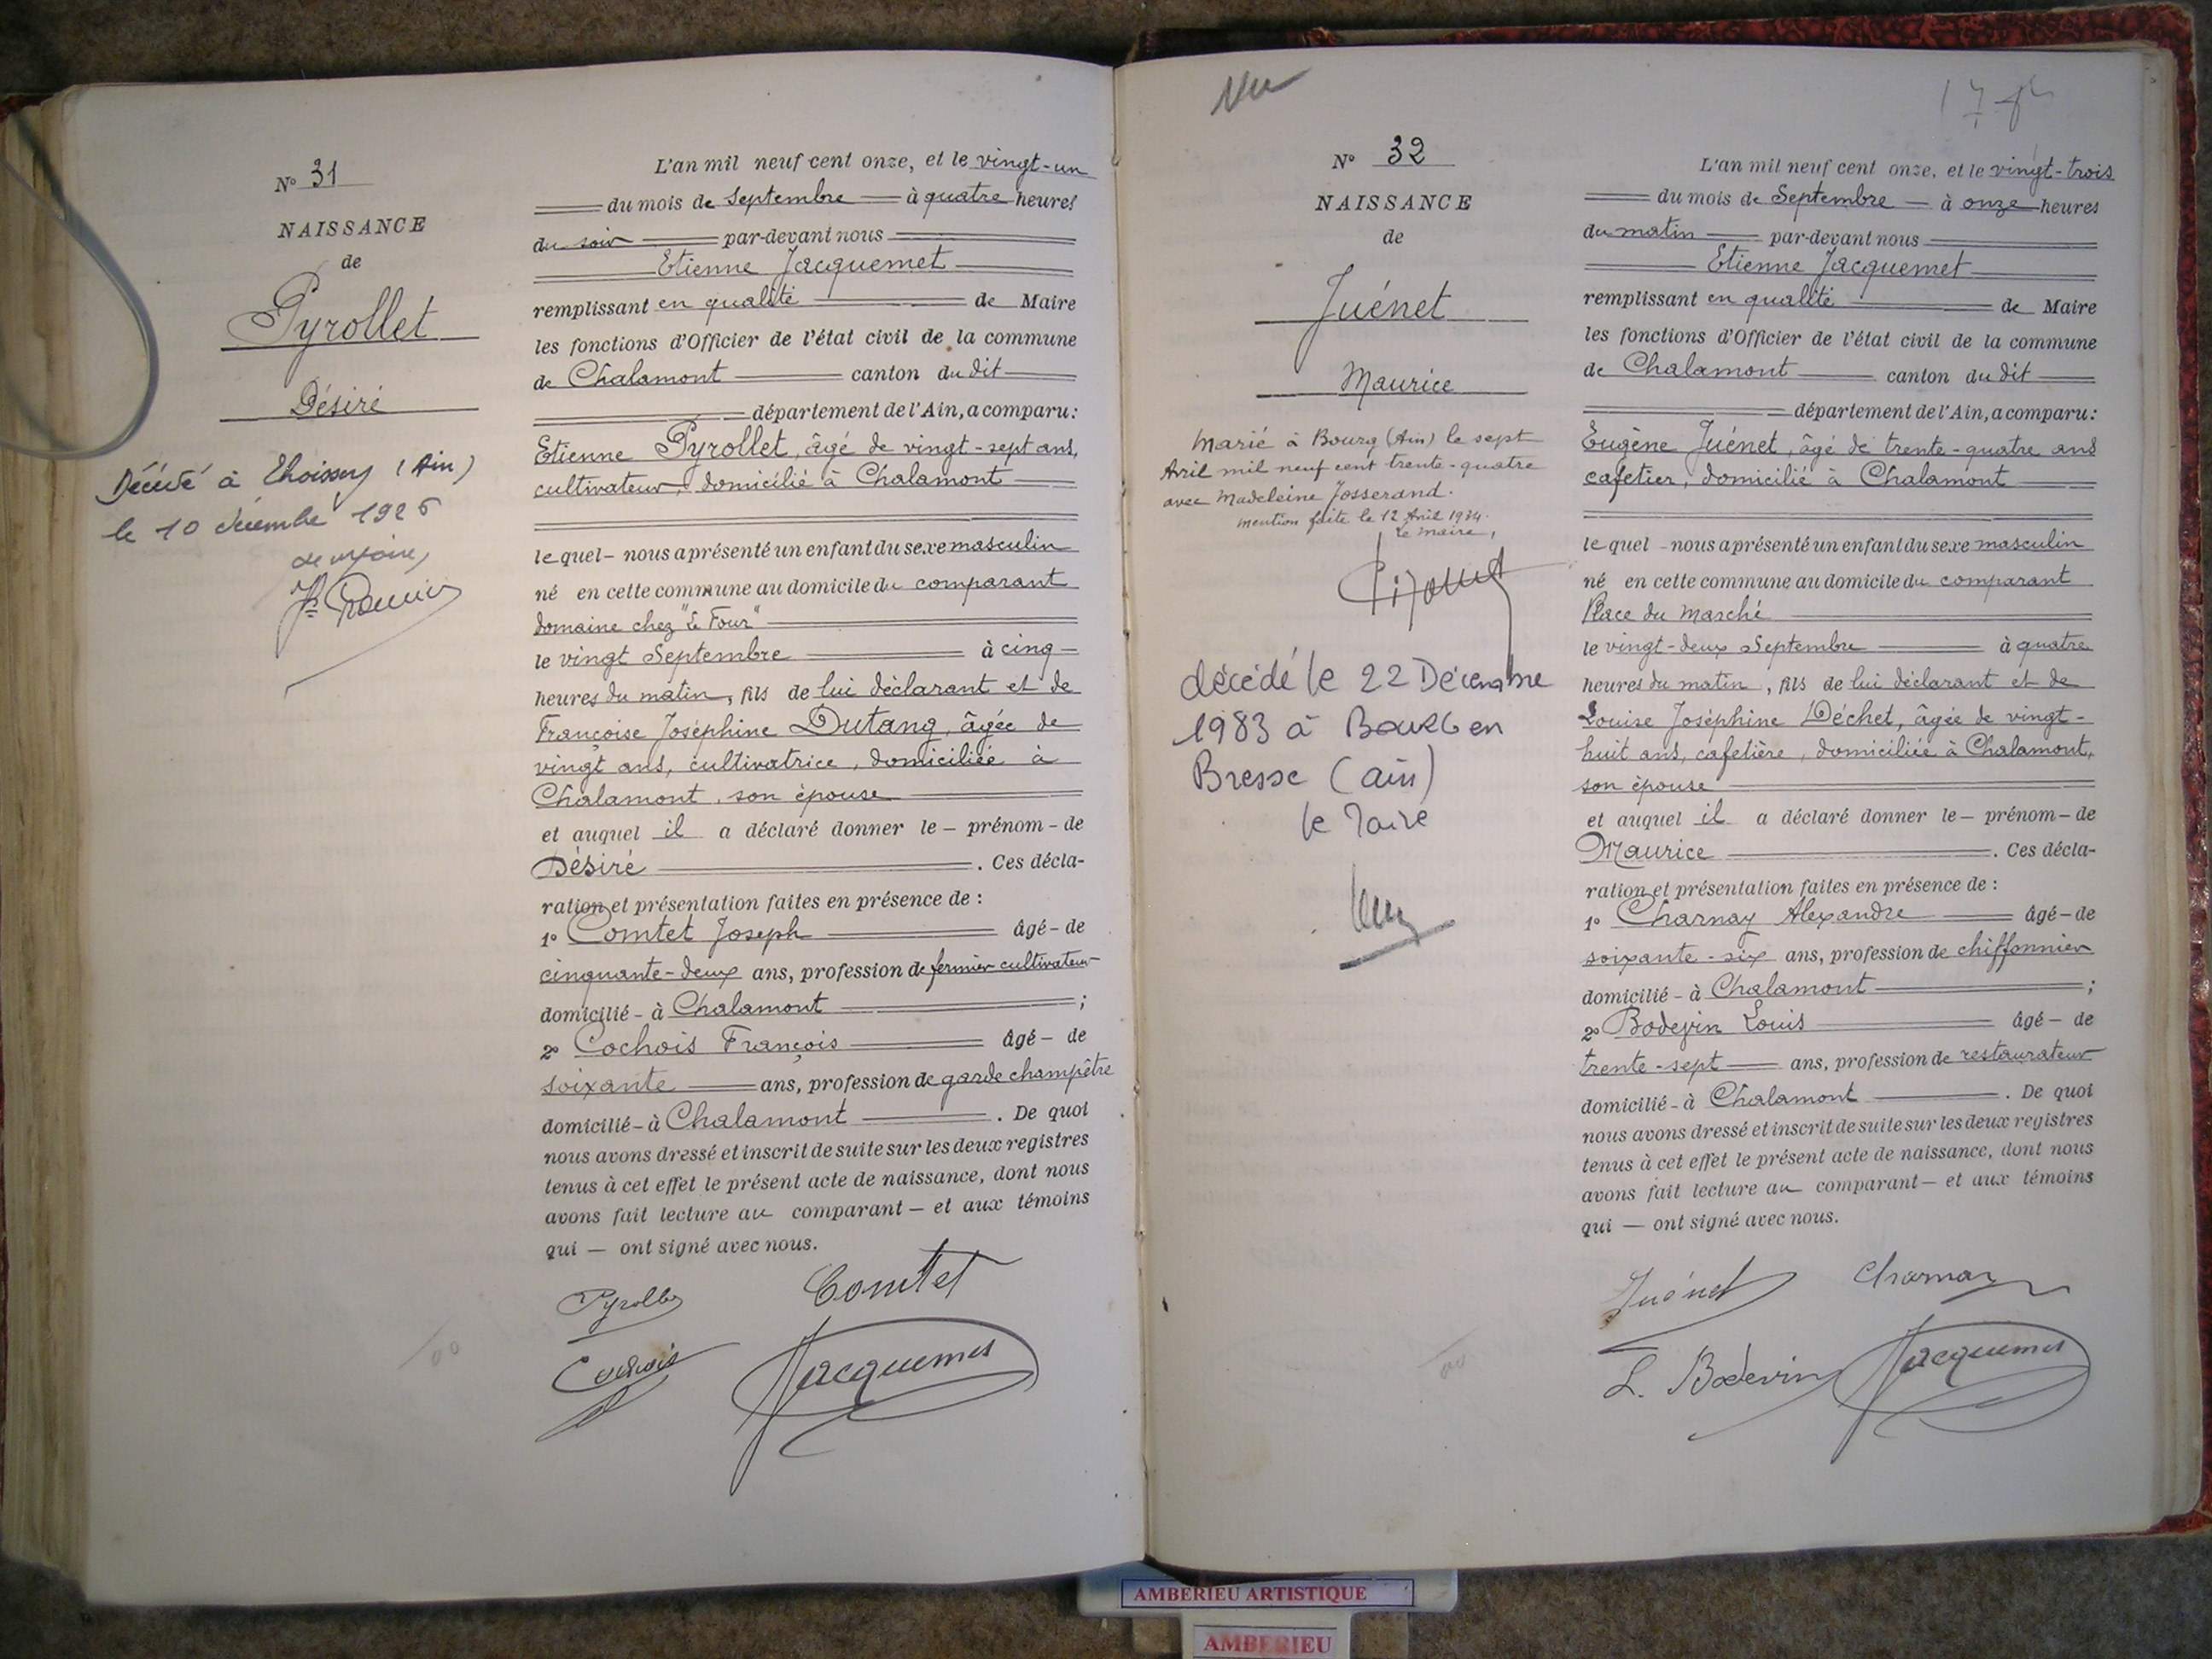 N° 31
NAISSANCE
de
Pyrollet
Désiré
Décédé à Thoissey (Ain)
le 10 décembre 1926
L'an mil neuf cent onze, et le vingt-un
du mois de Septembre à quatre heures
du soir par-devant nous
Etienne Jacquemet
remplissant en qualité de Maire
les fonctions d'Officier de l'état civil de la commune
de Chalamont canton du dit
département de l'Ain, a comparu:
Etienne Pyrollet, âgé de vingt-sept ans,
cultivateur, domicilié à Chalamont
le quel - nous a présenté un enfant du sexe masculin
né en cette commune au domicile du comparant
domaine chez "Le Four"
le vingt Septembre à cinq
heures du matin, fils de lui déclarant et de
Françoise Joséphine Dutang, âgée de
vingt ans, cultivatrice, domiciliée à
Chalamont, son épouse
et auquel il a déclaré donner le - prénom - de
Désiré. Ces décla-
ration et présentation faites en présence de :
1° Comtet Joseph âgé - de
cinquante-deux ans, profession de fermier cultivateur
domicilié - à Chalamont ;
2° Cochois François âgé - de
soixante ans, profession de garde champêtre
domicilié - à Chalamont. De quoi
nous avons dressé et inscrit de suite sur les deux registres
tenus à cet effet le présent acte de naissance, dont nous
avons fait lecture au comparant — et aux témoins
qui — ont signé avec nous.
Pyrollet Comtet
Cochois Jacquemet
Vu
N° 32
NAISSANCE
de
Juénet
Maurice
Marié à Bourg (Ain) le sept
Avril mil neuf cent trente-quatre
avec Madeleine Josserand.
Mention faite le 12 Avril 1934.
Le Maire,
décédé le 22 Décembre
1983 à Bourg en
Bresse (ain)
le Maire
L'an mil neuf cent onze, et le vingt-trois
du mois de Septembre — à onze heures
du matin par-devant nous
Etienne Jacquemet
remplissant en qualité de Maire
les fonctions d'Officier de l'état civil de la commune
de Chalamont canton du dit
département de l'Ain, a comparu:
Eugène Juénet, âgé de trente-quatre ans
cafetier, domicilié à Chalamont
le quel - nous a présenté un enfant du sexe masculin
né en cette commune au domicile du comparant
Place du Marché
le vingt-deux Septembre à quatre
heures du matin, fils de lui déclarant et de
Louise Joséphine Déchet, âgée de vingt-
huit ans, cafetière, domiciliée à Chalamont,
son épouse
et auquel il a déclaré donner le - prénom - de
Maurice. Ces décla-
ration et présentation faites en présence de :
1° Charnay Alexandre âgé - de
soixante-six ans, profession de chiffonnier
domicilié - à Chalamont ;
2° Bodevin Louis âgé - de
trente-sept ans, profession de restaurateur
domicilié - à Chalamont. De quoi
nous avons dressé et inscrit de suite sur les deux registres
tenus à cet effet le présent acte de naissance, dont nous
avons fait lecture au comparant — et aux témoins
qui — ont signé avec nous.
Juénet Charnay
L. Bodevin Jacquemet
AMBERIEU ARTISTIQUE
AMBERIEU